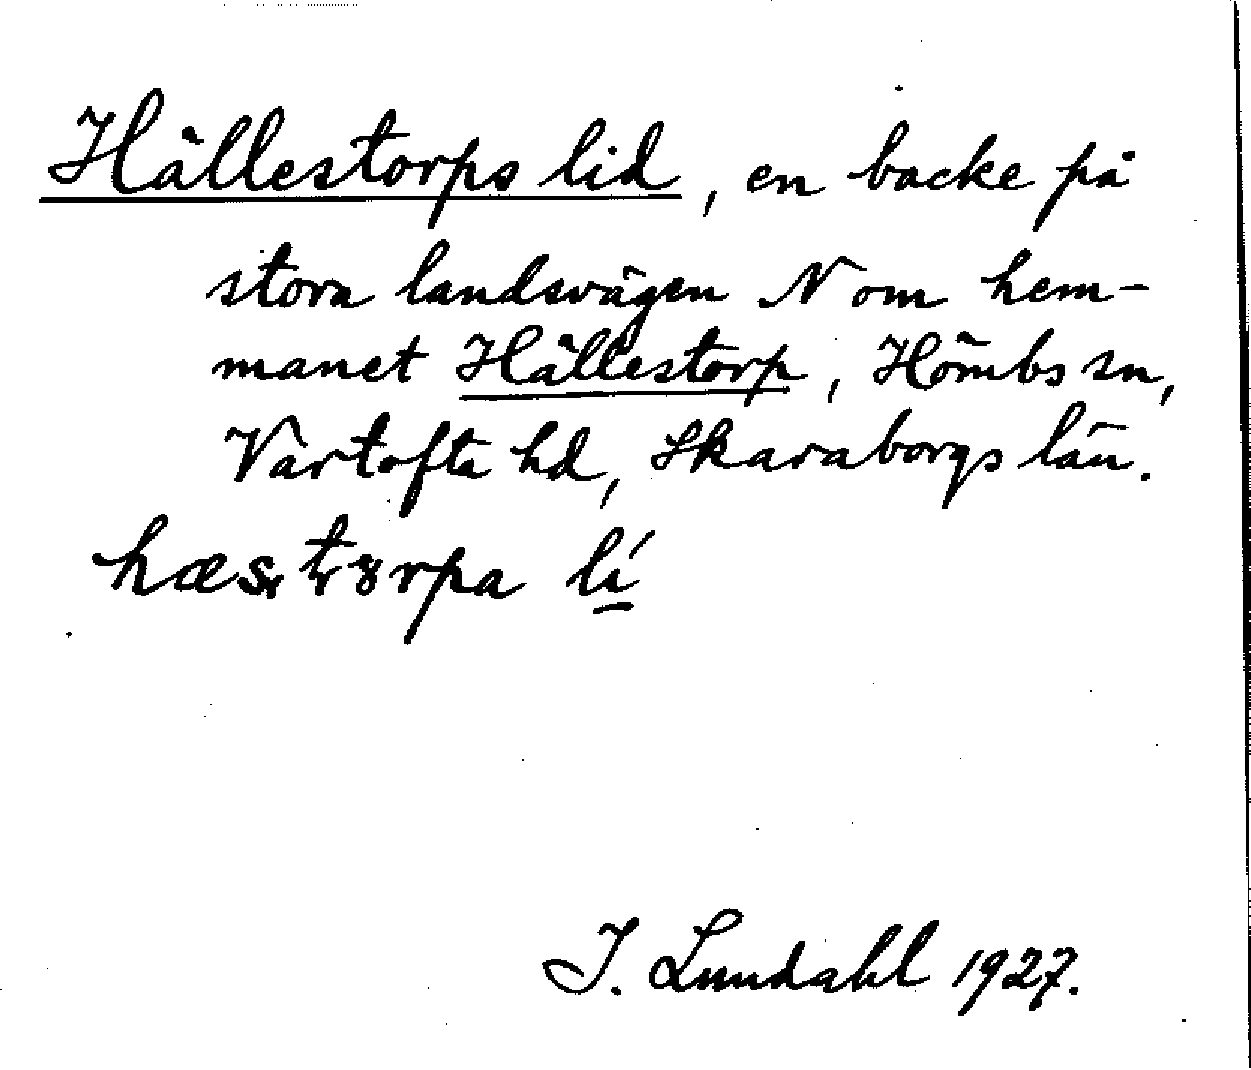 Hällestorps lid, en backe på
stora landsvägen N om hem-
manet Hällestorp, Hömbs sn,
Vartofta hd, Skaraborgs län.
hæstɤrpa lí
I. Lundahl 1927.